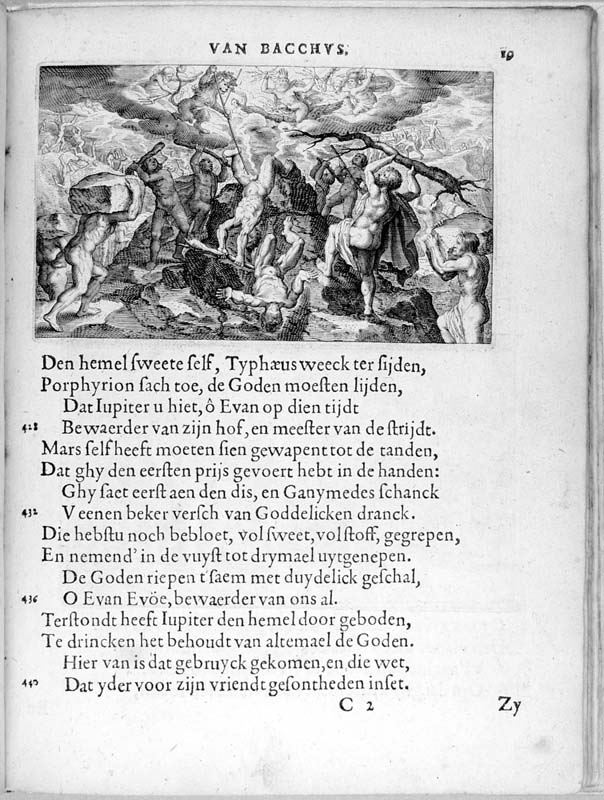 VAN BACCHVS.
19
Den hemel ſweete ſelf, Typhæus weeck ter ſijden,
Porphyrion ſach toe, de Goden moeſten lijden,
Dat Iupiter u hiet, ô Evan op dien tijdt
428 Bewaerder van zijn hof, en meeſter van de ſtrijdt.
Mars ſelf heeft moeten ſien gewapent tot de tanden,
Dat ghy den eerſten prijs gevoert hebt in de handen:
Ghy ſaet eerſt aen den dis, en Ganymedes ſchanck
432 V eenen beker verſch van Goddelicken dranck.
Die hebſtu noch bebloet, vol ſweet, vol ſtoff, gegrepen,
En nemend' in de vuyſt tot drymael uytgenepen.
De Goden riepen t'ſaem met duydelick geſchal,
436 O Evan Evöe, bewaerder van ons al.
Terſtondt heeft Iupiter den hemel door geboden,
Te drincken het behoudt van altemael de Goden.
Hier van is dat gebruyck gekomen, en die wet,
440 Dat yder voor zijn vriendt geſontheden inſet.
C 2
Zy